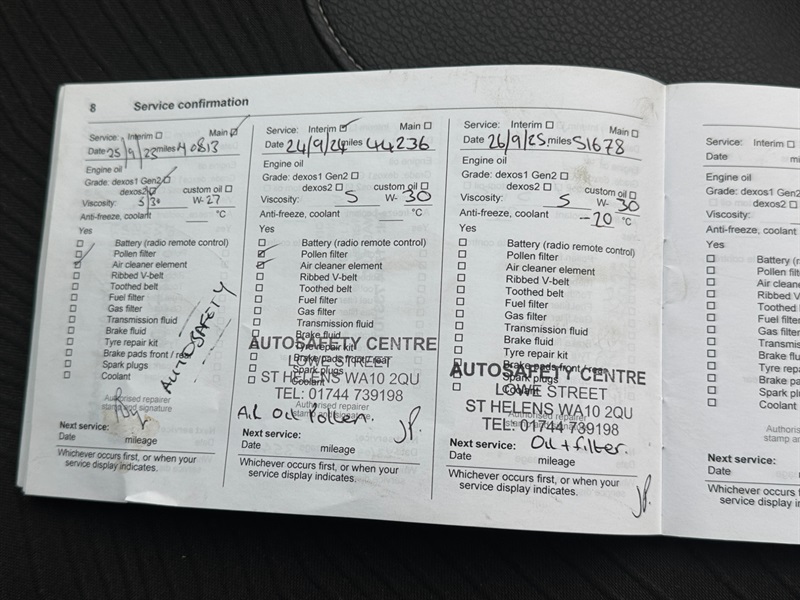 8 Service confirmation
Service: Interim Main
Date 25/9/23 miles 40813
Engine oil
Grade: dexos1 Gen2
dexos2 custom oil
Viscosity: 5/30 W-27
Anti-freeze, coolant °C
Yes
Battery (radio remote control)
Pollen filter
Air cleaner element
Ribbed V-belt
Toothed belt
Fuel filter
Gas filter
Transmission fluid
Brake fluid
Tyre repair kit
Brake pads front / rear
Spark plugs
Coolant
AUTOSAFETY
Authorised repairer
stamp and signature
Next service:
Date mileage
Whichever occurs first, or when your
service display indicates.
Service: Interim Main
Date 24/9/24 miles 44236
Engine oil
Grade: dexos1 Gen2
dexos2 custom oil
Viscosity: 5 W- 30
Anti-freeze, coolant °C
Yes
Battery (radio remote control)
Pollen filter
Air cleaner element
Ribbed V-belt
Toothed belt
Fuel filter
Gas filter
Transmission fluid
Brake fluid
Tyre repair kit
Brake pads front / rear
Spark plugs
Coolant
AUTOSAFETY CENTRE
LOWE STREET
ST HELENS WA10 2QU
TEL: 01744 739198
Authorised repairer
stamp and signature
Air Oil Pollen. JP.
Next service:
Date mileage
Whichever occurs first, or when your
service display indicates.
Service: Interim Main
Date 26/9/25 miles 51678
Engine oil
Grade: dexos1 Gen2
dexos2 custom oil
Viscosity: 5 W- 30
Anti-freeze, coolant -20 °C
Yes
Battery (radio remote control)
Pollen filter
Air cleaner element
Ribbed V-belt
Toothed belt
Fuel filter
Gas filter
Transmission fluid
Brake fluid
Tyre repair kit
Brake pads front / rear
Spark plugs
Coolant
AUTOSAFETY CENTRE
LOWE STREET
ST HELENS WA10 2QU
TEL: 01744 739198
Authorised repairer
stamp and signature
Oil + filter.
Next service:
Date mileage
Whichever occurs first, or when your
service display indicates.
JP.
Service: Interim
Date mi
Engine oil
Grade: dexos1 Gen2
dexos2
Viscosity:
Anti-freeze, coolant
Yes
Battery (r
Pollen filt
Air cleane
Ribbed V
Toothed
Fuel filte
Gas filte
Transmis
Brake flu
Tyre repa
Brake pa
Spark pl
Coolant
Authoris
stamp a
Next service:
Date
Whichever occurs f
service display indi